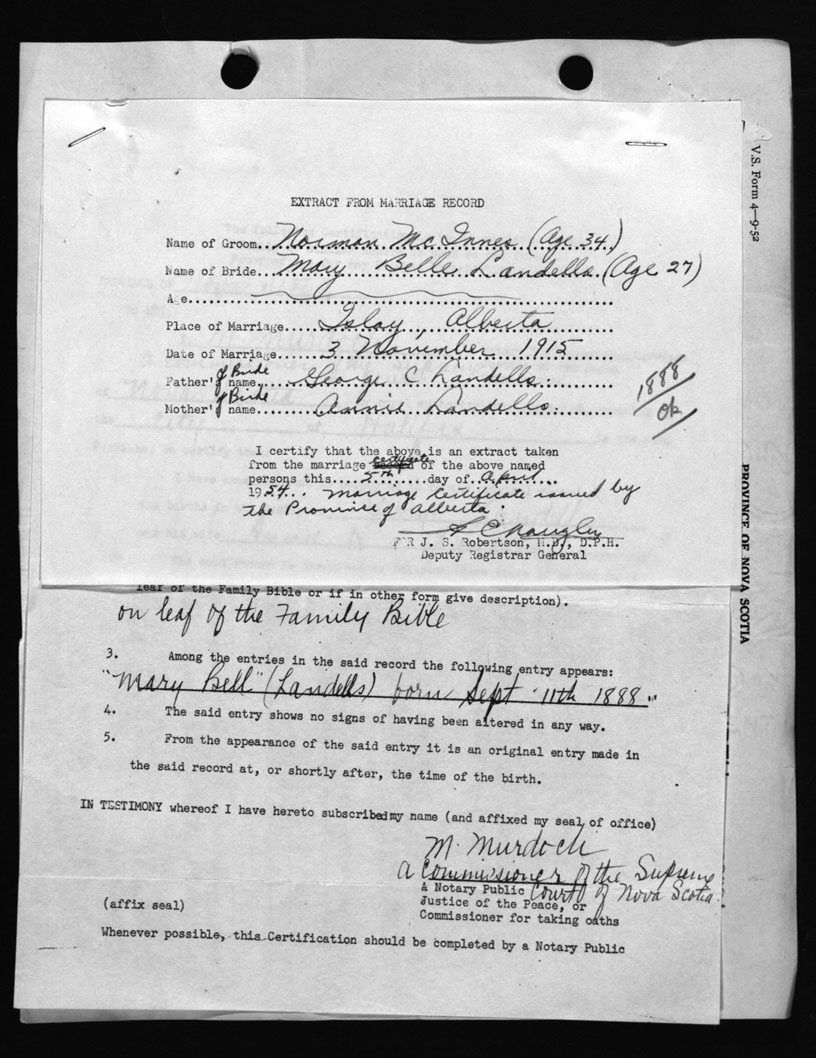 EXTRACT FROM MARRIAGE RECORD
Name of Groom..Norman McInnes (Age 34)
Name of Bride...Mary Belle Landells (Age 27)
Age
Place of Marriage....Islay, Alberta
Date of Marriage....3 November 1915
of Bride
Father' name....George C Landells
of Bride
Mother' name....Annie Landells
1888
OK
I certify that the above is an extract taken
from the marriage certificate of the above named
persons this....5th....day of April...
1954... Marriage Certificate issued by
the Province of Alberta.
FOR J. S. Robertson, M.D., D.P.H.
Deputy Registrar General
leaf of the Family Bible or if in other form give description).
on leaf of the Family Bible
3. Among the entries in the said record the following entry appears:
"Mary Bell" (Landells) born Sept. 11th 1888."
4. The said entry shows no signs of having been altered in any way.
5. From the appearance of the said entry it is an original entry made in
the said record at, or shortly after, the time of the birth.
IN TESTIMONY whereof I have hereto subscribed my name (and affixed my seal of office)
M. Murdoch
a Commissioner of the Supreme
A Notary Public Court of Nova Scotia.
Justice of the Peace, or
(affix seal)
Commissioner for taking oaths
Whenever possible, this Certification should be completed by a Notary Public
V.S. Form 4-9-52
PROVINCE OF NOVA SCOTIA